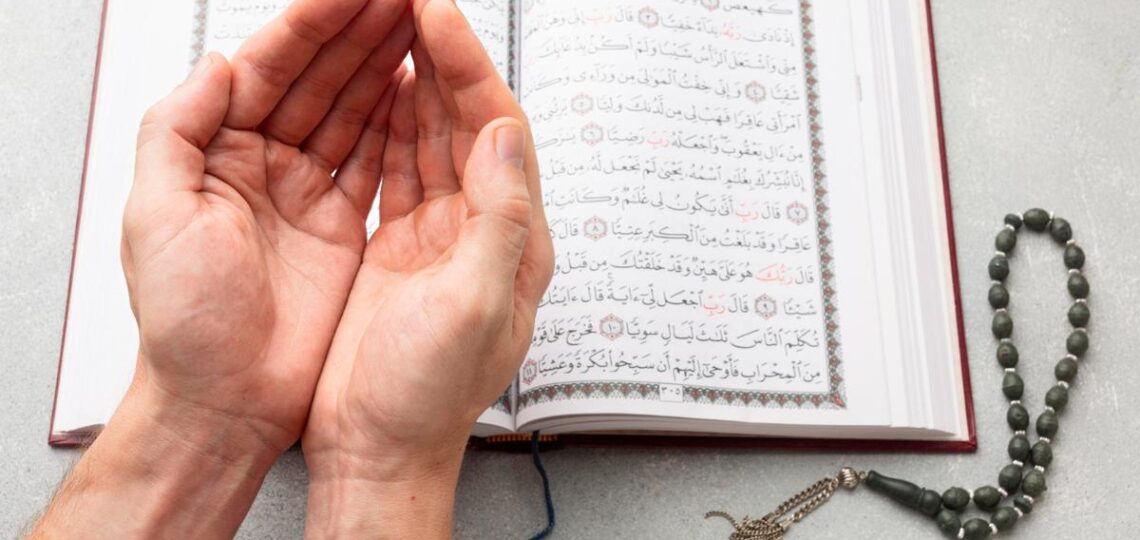 كٓهيعٓصٓ
إِذْ نَادَىٰ رَبَّهُۥ نِدَآءً خَفِيًّا ٣ قَالَ رَبِّ إِنِّى وَهَنَ
مِنِّى وَٱشْتَعَلَ ٱلرَّأْسُ شَيْبًا وَلَمْ أَكُنۢ بِدُعَآئِكَ
شَقِيًّا ٤ وَإِنِّى خِفْتُ ٱلْمَوَٰلِىَ مِن وَرَآءِى وَكَانَتِ
ٱمْرَأَتِى عَاقِرًا فَهَبْ لِى مِن لَّدُنكَ وَلِيًّا ٥ يَرِثُنِى
مِنْ ءَالِ يَعْقُوبَ ۖ وَٱجْعَلْهُ رَبِّ رَضِيًّا ٦
إِنَّا نُبَشِّرُكَ بِغُلَٰمٍ ٱسْمُهُۥ يَحْيَىٰ لَمْ نَجْعَل لَّهُۥ مِن قَبْلُ
٧ قَالَ رَبِّ أَنَّىٰ يَكُونُ لِى غُلَٰمٌ وَكَانَتِ
عَاقِرًا وَقَدْ بَلَغْتُ مِنَ ٱلْكِبَرِ عِتِيًّا ٨ قَالَ
قَالَ رَبُّكَ هُوَ عَلَىَّ هَيِّنٌ وَقَدْ خَلَقْتُكَ مِن قَبْلُ
شَيْـًٔا ٩ قَالَ رَبِّ ٱجْعَل لِّىٓ ءَايَةً ۚ قَالَ ءَايَتُكَ
تُكَلِّمَ ٱلنَّاسَ ثَلَٰثَ لَيَالٍ سَوِيًّا ١٠ فَخَرَجَ عَلَىٰ
مِنَ ٱلْمِحْرَابِ فَأَوْحَىٰٓ إِلَيْهِمْ أَن سَبِّحُوا۟ بُكْرَةً وَعَشِيًّا ١١
٣٠٥